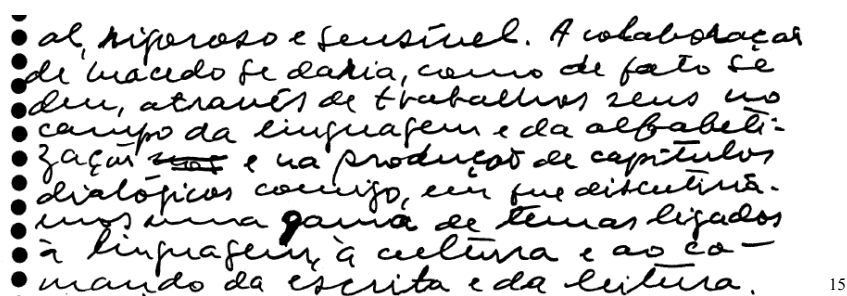 al, rigoroso e sensível. A colaboração
de Macedo se daria, como de fato se
deu, através de trabalhos seus no
campo da linguagem e da alfabeti-
zação e na produção de capítulos
dialógicos comigo, em que discutiría-
mos uma gama de temas ligados
à linguagem, à cultura e ao co-
mando da escrita e da leitura.
15